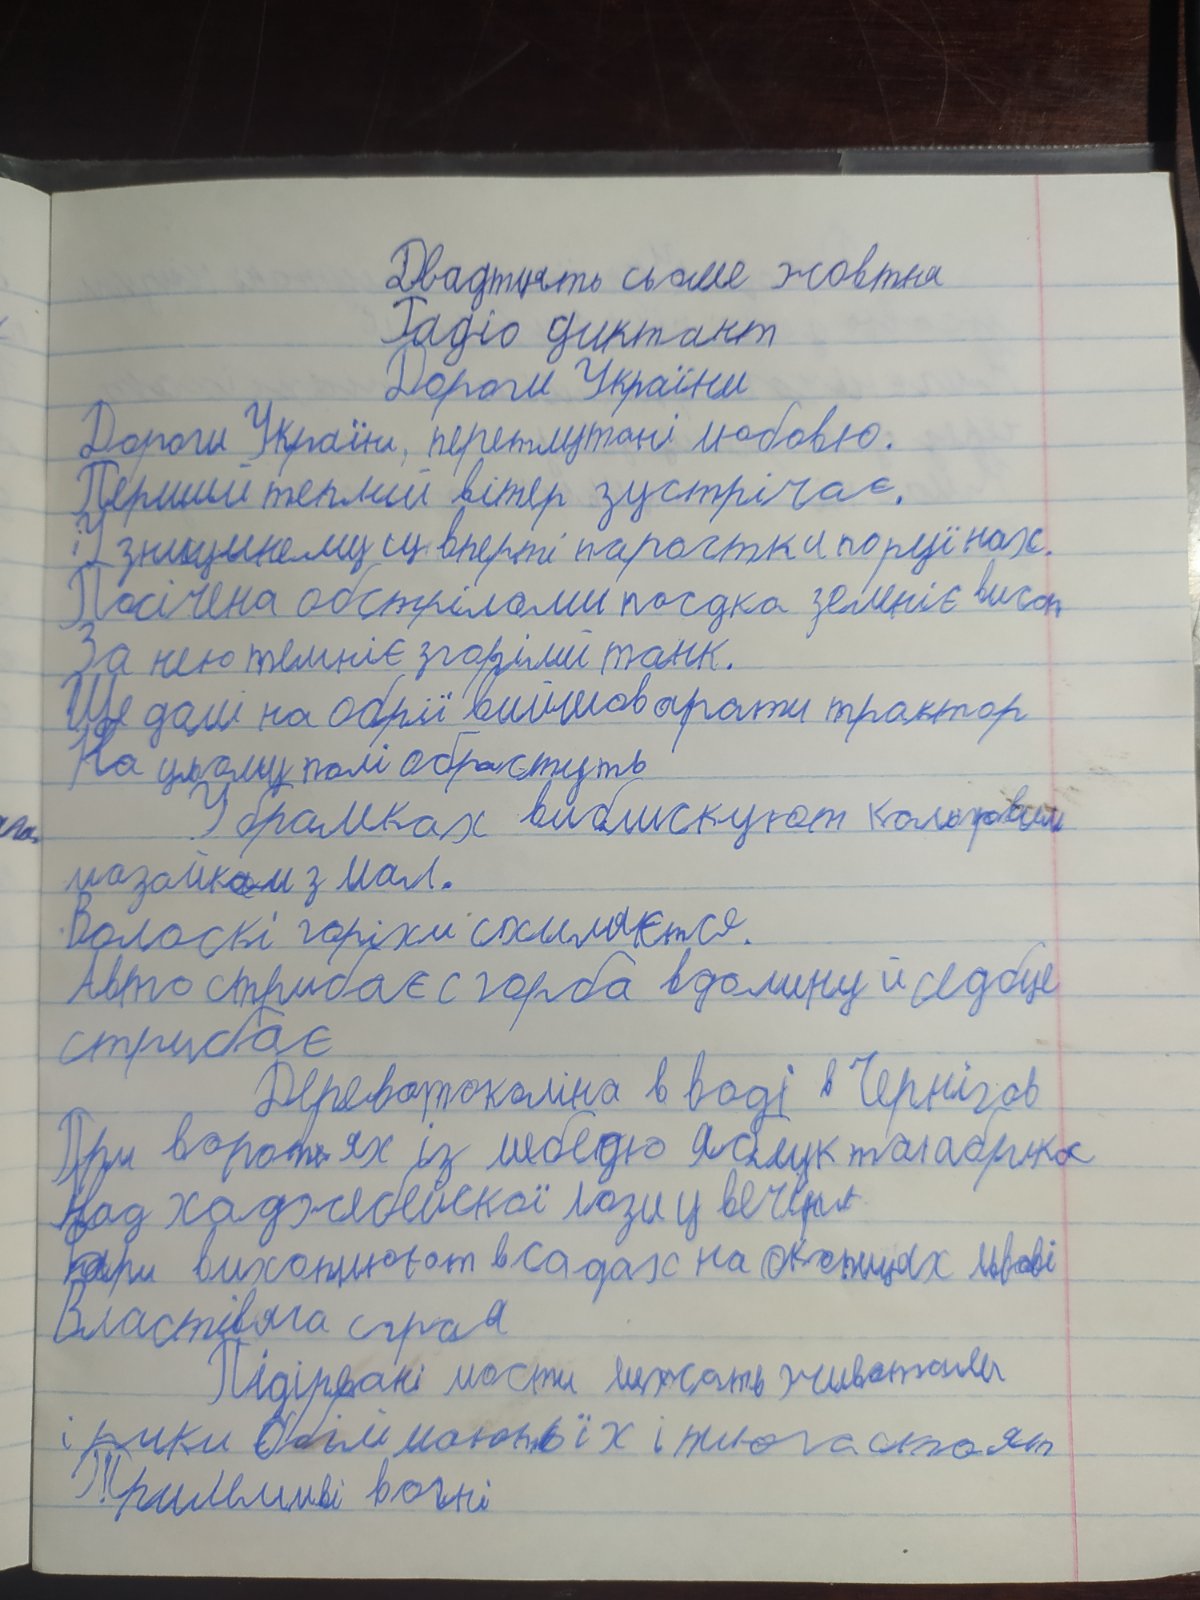 Двадтцять сьоме жовтня
Радіо диктант
Дороги України
Дороги України, переплутані любовю.
Перший теплий вітер зустрічає.
і У знищеному су вперті паростки по руїнах.
Посічена обстрілами посдка зеленіє висот
За нею темніє згорілий танк.
Ще далі на обрії вийшов арати трактор
На цьому полі обростуть
У брамках виблискуют кольоровими
мозайкам з мал.
Волоскі горіхи схиляются.
Авто стрибає с горба вдолину й седбце
стрибає
Дерева по коліна в воді в Чернігов
При воротьях із лебедю
Над хаджебейскої лозиц вечіря
вихопцюют в садах на околицах Львові
Властівяга страя
Підірвані мости лижать животами
і рики обіймають їх і
Примхливі вогні